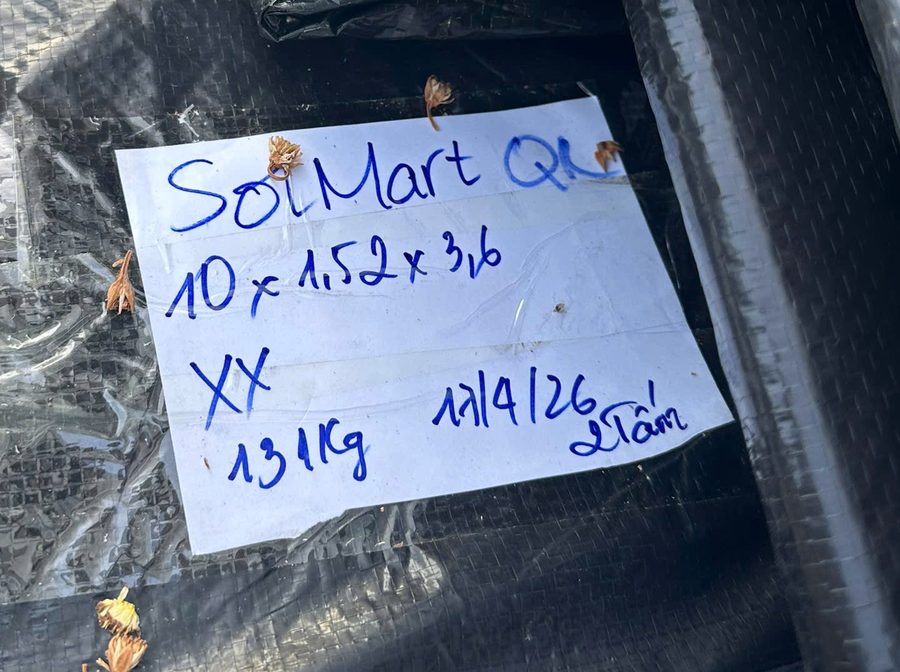 SolMart QL
10 x 1,52 x 3,6
XX
131Kg
17/4/26
2Tấm